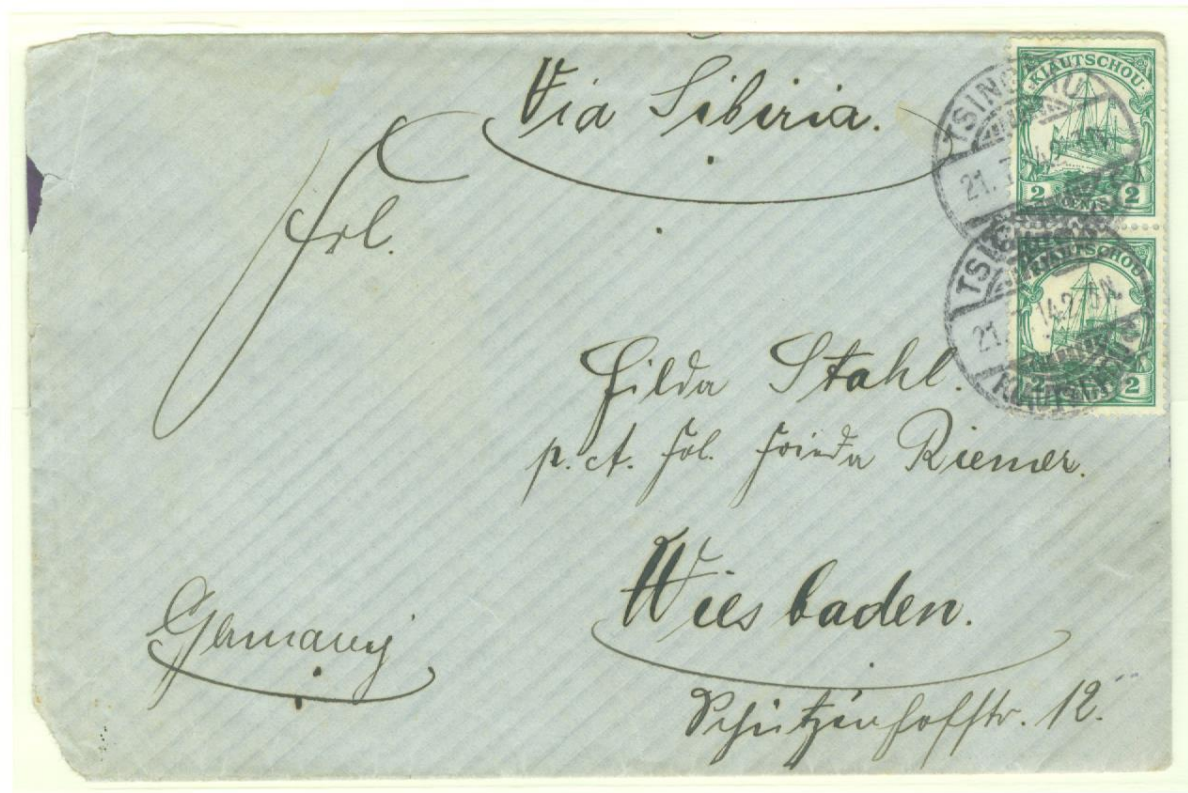 Via Sibiria.
KIAUTSCHOU
2 CENTS 2
TSINGTAU
21. 14.2-3N.
KIAUTSCHOU
2 2
TSINGTAU
21. 14.2-3N.
KIAUTSCHOU
Frl.
Hilda Stahl.
p. A. Frl. Frieda Riemer.
Wiesbaden.
Germany
Schützenhofstr. 12.